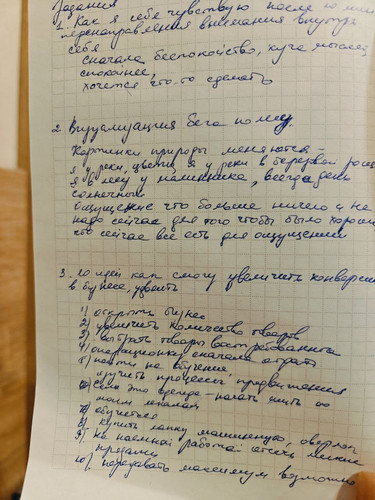 Задания
1. Как я себя чувствую после 10 мин
перенаправления внимания внутрь
себя
Сначала беспокойство, куча мыслей
спокойнее,
Хочется что-то сделать
2. Визуализация бега по лесу.
Картинки природы меняются -
я у реки, цветы, я у реки в березовой роще
я в лесу у малинника, всегда день
солнечный
Ощущение что больше ничего и не
надо сейчас для того чтобы было хорошо
что сейчас все есть для ощущения
3. 10 идей как смогу увеличить конверсию
в бизнесе,
1) открыть бизнес
2) увеличить количество товаров
3) выбрать товары востребованные
4) операционку сначала
5) пойти на обучение
изучить процессы продвижения
6) Если это одежда - начать шить по
моим лекалам
7) обучиться
8) купить лапку машинную, оверлок
9) На наемной работе
продажи
10) максимум возможно